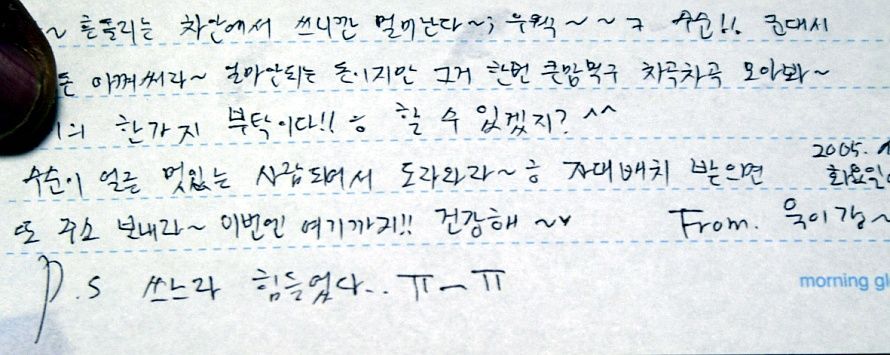 ~ 흔들리는 차안에서 쓰니깐 멀미난다~; 우웩~~ㅋ 수순!! 군대서
돈 아껴써라~ 얼마안되는 돈이지만 그거 한번 큰맘먹구 차곡차곡 모아봐~
한가지 부탁이다!! ㅎ 할 수 있겠지? ^^
수순이 얼른 멋있는 사람되어서 도라와라~ㅎ 자대배치 받으면
또 주소 보내라~ 이번엔 여기까지!! 건강해 ~♥
2005.
화요일
From. 욱이
P.S 쓰느라 힘들었다.. ㅠㅡㅠ
morning gl